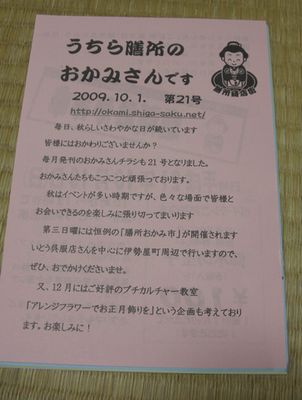 うちら膳所の
おかみさんです
膳所商店街
2009.10.1. 第21号
http://okami.shiga-saku.net/
毎日、秋らしいさわやかな日が続いています
皆様にはおかわりございませんか？
毎月発刊のおかみさんチラシも21号となりました。
おかみさんたちもこつこつと頑張っております。
秋はイベントが多い時期ですが、色々な場面で皆様と
お会いできるのを楽しみに張り切ってまいります
第三日曜には恒例の「膳所おかみ市」が開催されます
いとう呉服店さんを中心に伊勢屋町周辺で行いますので、
ぜひ、おでかけくださいませ。
又、12月にはご好評のプチカルチャー教室
「アレンジフラワーでお正月飾りを」という企画も考えており
ます。お楽しみに！